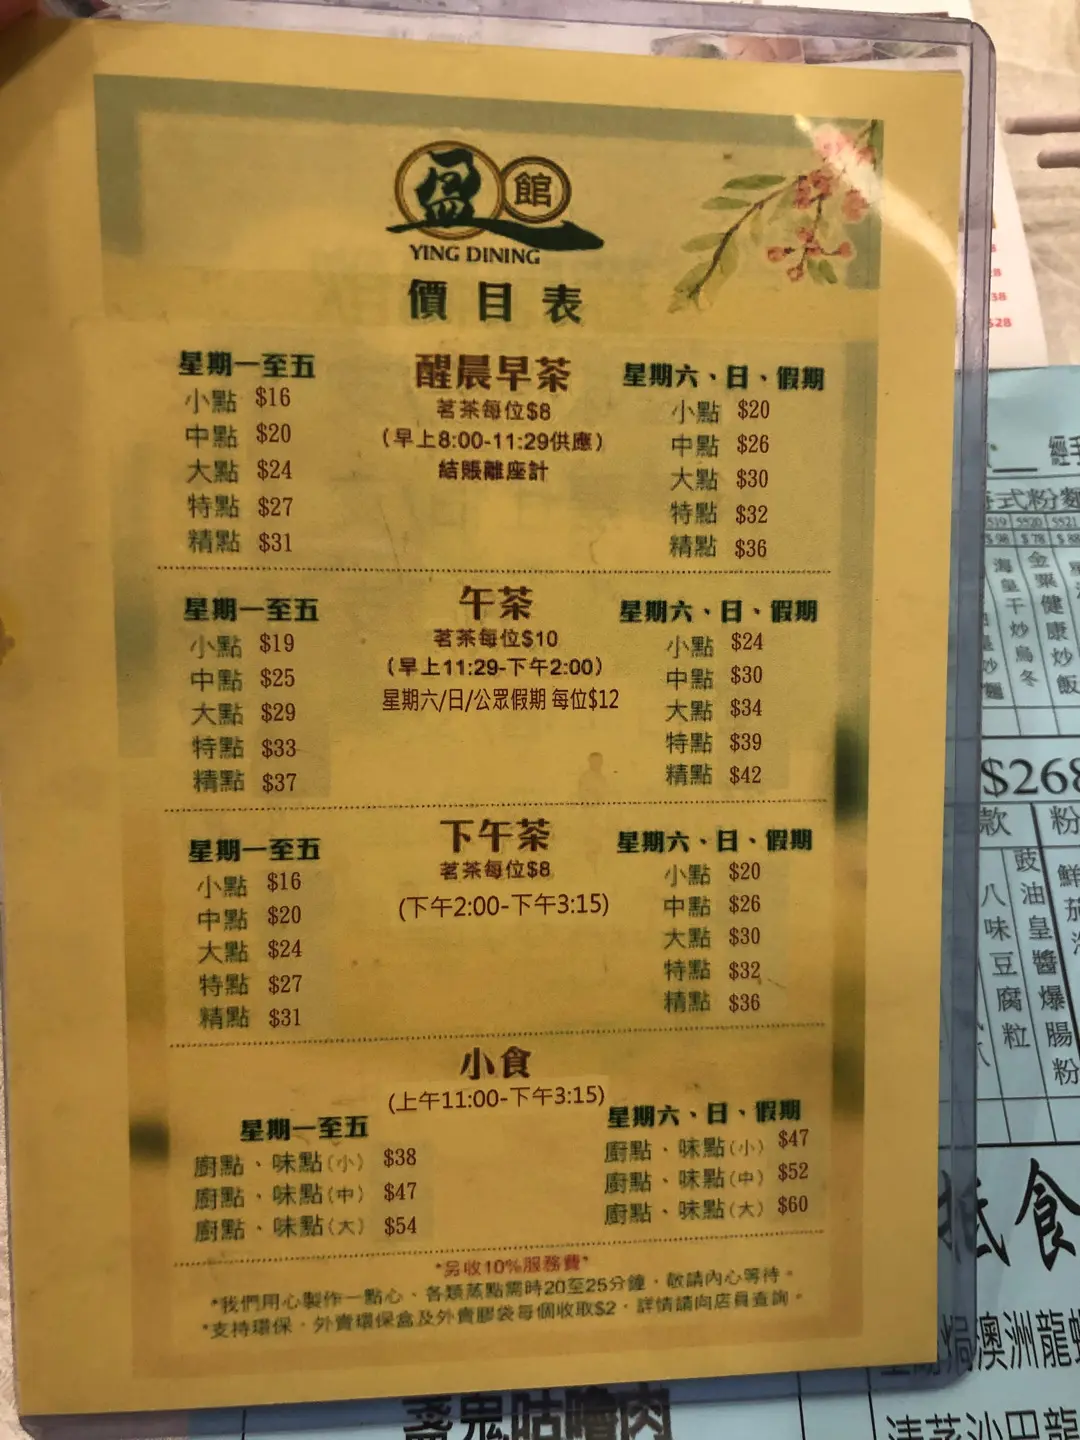 盈館
YING DINING
價目表
醒晨早茶
茗茶每位$8
(早上8:00-11:29供應)
結賬離座計
星期一至五
小點 $16
中點 $20
大點 $24
特點 $27
精點 $31
星期六、日、假期
小點 $20
中點 $26
大點 $30
特點 $32
精點 $36
午茶
茗茶每位$10
(早上11:29-下午2:00)
星期六/日/公眾假期 每位$12
星期一至五
小點 $19
中點 $25
大點 $29
特點 $33
精點 $37
星期六、日、假期
小點 $24
中點 $30
大點 $34
特點 $39
精點 $42
下午茶
茗茶每位$8
(下午2:00-下午3:15)
星期一至五
小點 $16
中點 $20
大點 $24
特點 $27
精點 $31
星期六、日、假期
小點 $20
中點 $26
大點 $30
特點 $32
精點 $36
小食
(上午11:00-下午3:15)
星期一至五
廚點、味點(小) $38
廚點、味點(中) $47
廚點、味點(大) $54
星期六、日、假期
廚點、味點(小) $47
廚點、味點(中) $52
廚點、味點(大) $60
*另收10%服務費*
*我們用心製作一點心、各類蒸點需時20至25分鐘，敬請內心等待。
*支持環保，外賣環保盒及外賣膠袋每個收取$2，詳情請向店員查詢。
經手
式粉麵
5520 5521
$98 $78 $88
海皇干炒烏冬
金粟健康炒飯
$268
款
粉
八味豆腐粒
豉油皇醬爆腸粉
抵食
焗澳洲龍
清蒸沙巴龍
咕嚕肉